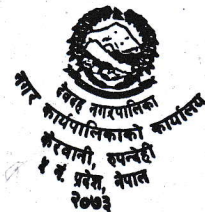 देवदह नगरपालिका
नगर कार्यपालिकाको कार्यालय
केरवानी, रुपन्देही
५ नं. प्रदेश, नेपाल
२०७३